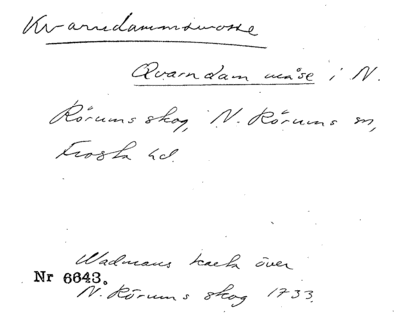 Kvarndammsmosse
Qvarndam måse i N.
Rörums skog, N. Rörums sn,
Frosta hd.
Wadmans karta över
Nr 6643.
N. Rörums skog 1733.